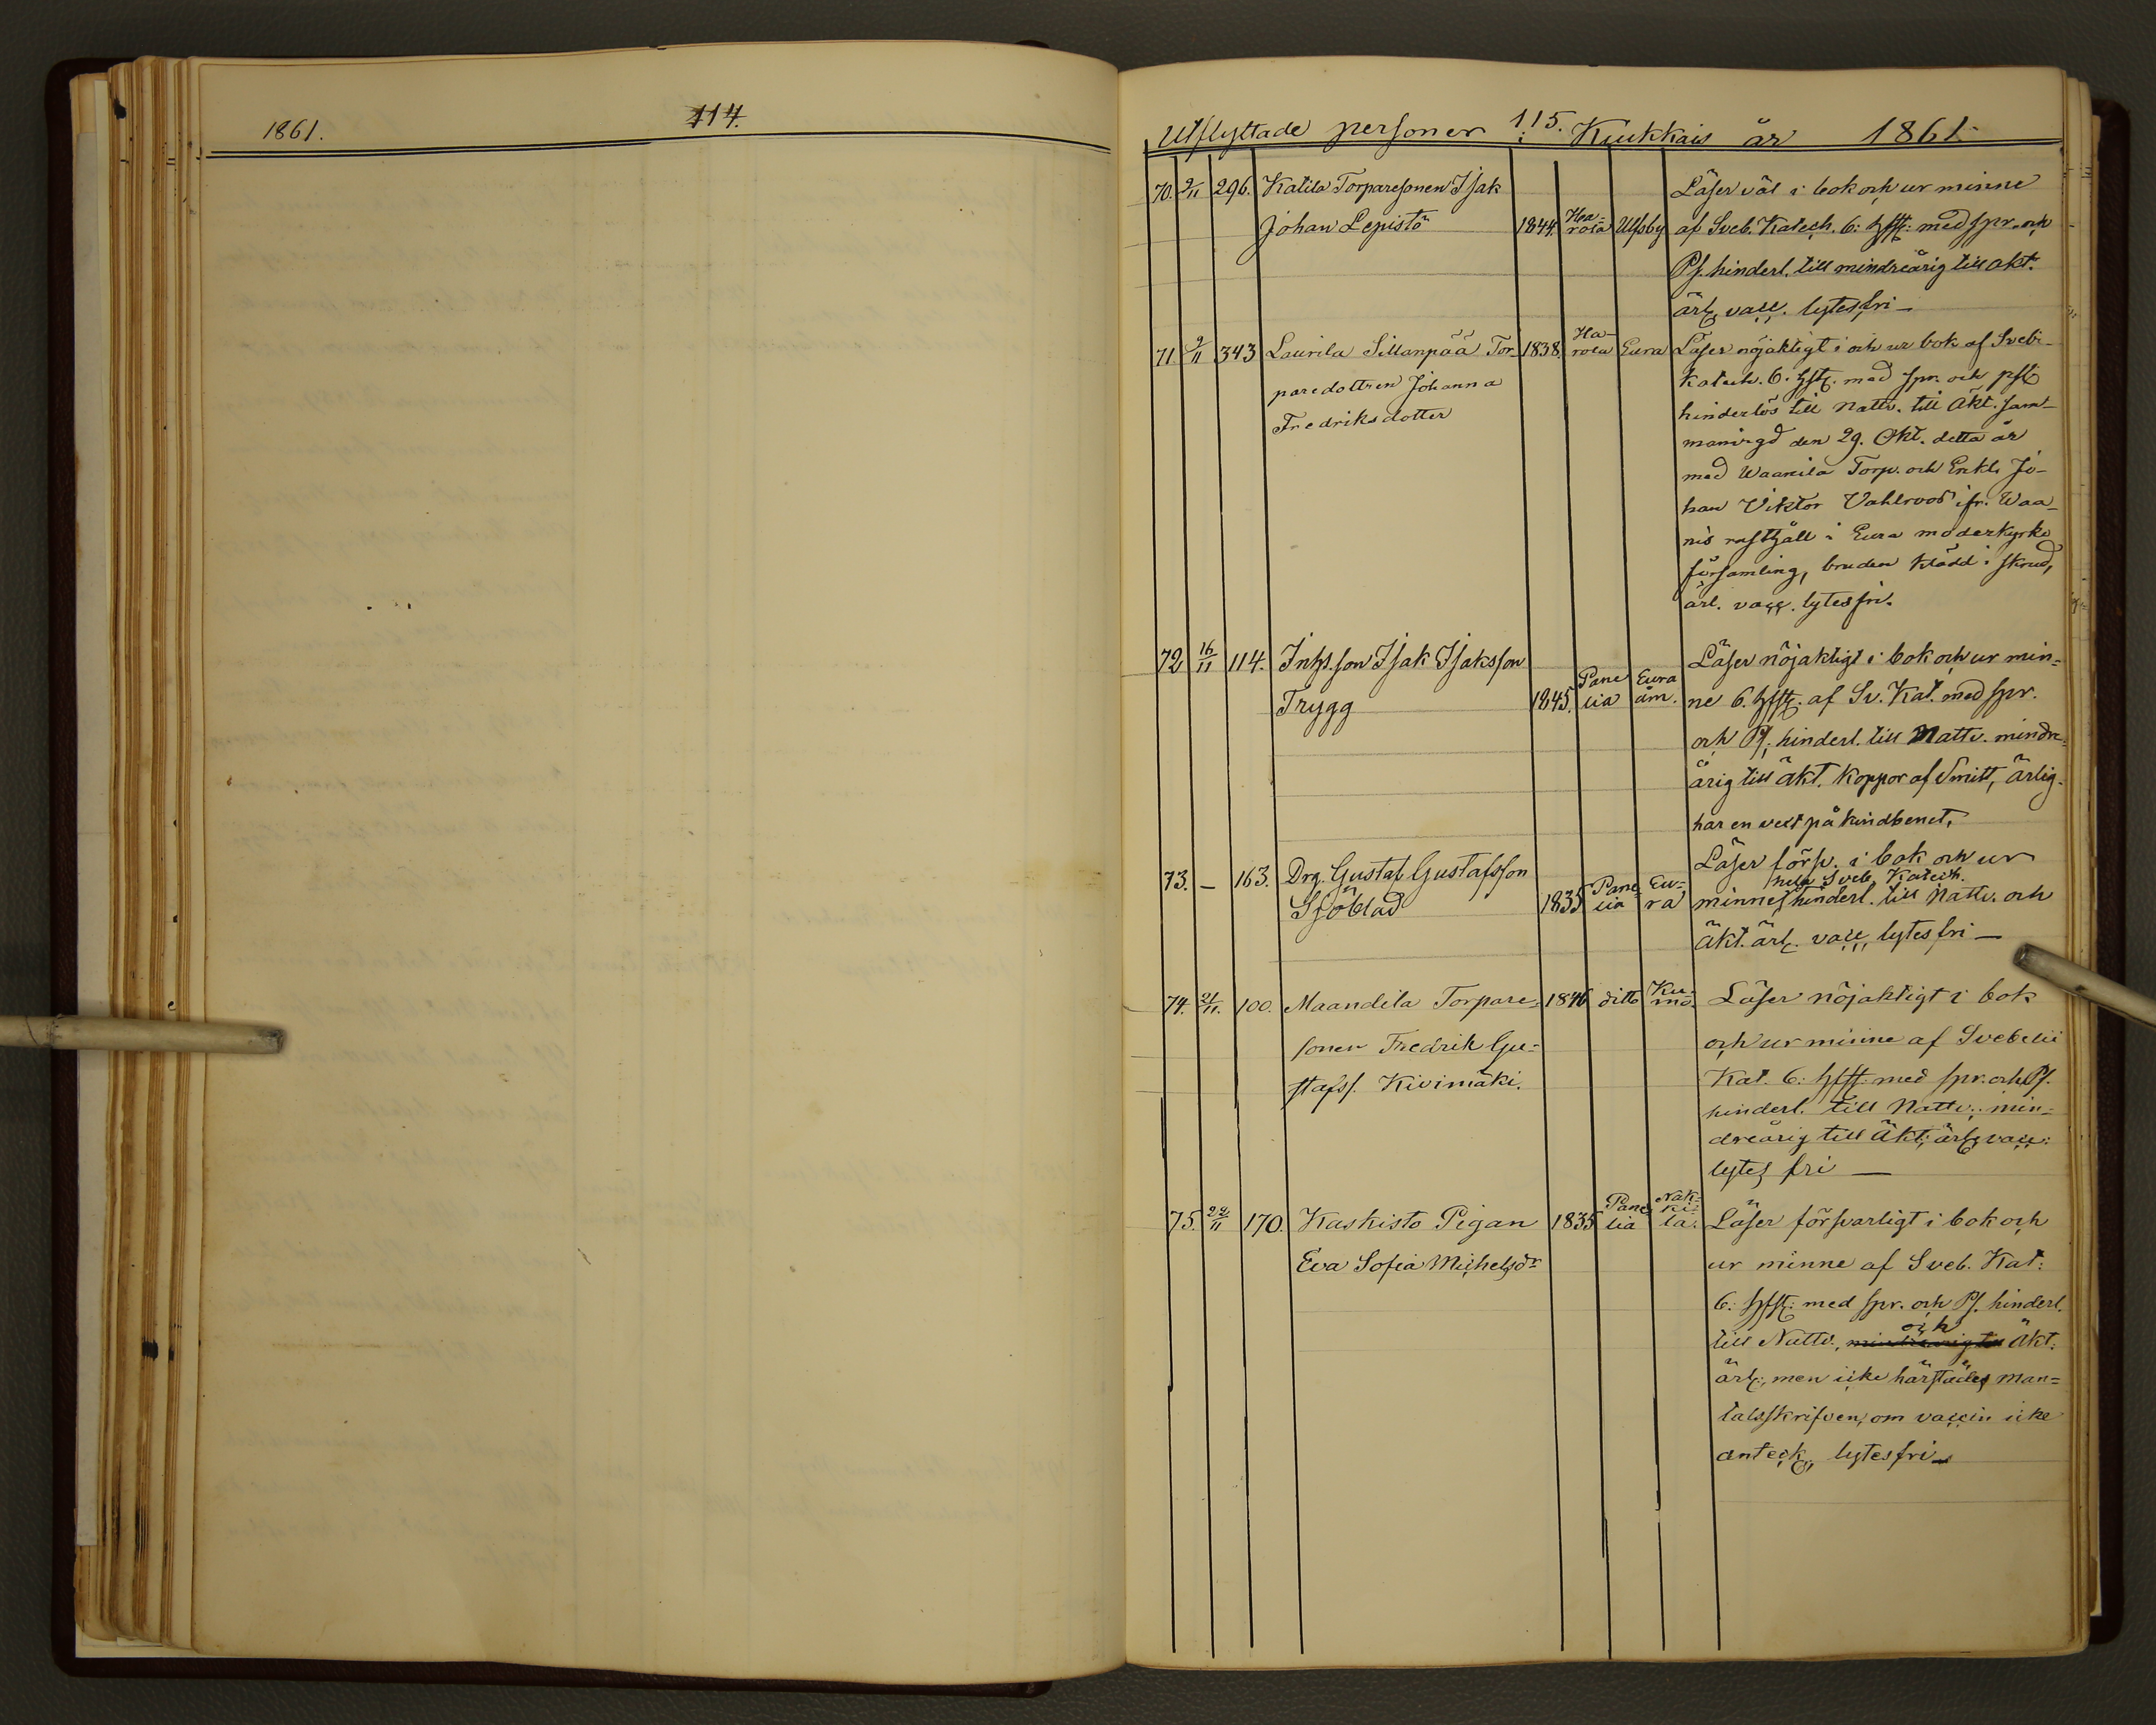 1861.
114.
Utflyttade personer 115. Kiukkais år 1861.
70. 9/11 296. Katila Torparesonen Isak
Johan Lepistö 1844. Ha=rola Ulfsby
Läser väl i bok och ur minne
af Sveb. Katech. 6: hfst: med spr. och
Ps. hinderl. till mindreårig till äkt.
ärl. vacc. lytesfri —
71. 9/11 343 Laurila Sillanpää Tor- 1838. Ha-rola Eura
paredottren Johanna
Fredriksdotter
Läser nöjaktigt i och ur bok af Svebi-
Katech. 6. hfst. med spr. och pst
hinderlös till Nattv. till Äkt. sam-
manvigd den 29. Okt. detta år
med Waanila Torp. och Enkl. Jo-
han Viktor Vahlroos ifr. Waa-
nis rusthåll i Eura moderkyrko
församling, bruden klädd i skrud,
ärl. vacc. lytesfri.
72 16/11 114. Inhs.son Isak Isaksson
Trygg 1845. Pane lia Eura åm.
Läser nöjaktigt i bok och ur min=
ne 6. hfst. af Sv. Kat. med spr.
och Ps. hinderl. till Nattv. mindre=
årig till äkt. koppor af Smitt, ärlig.
har en vext på kindbenet.
73. — 163. Drg. Gustaf Gustafsson
Sjöblad 1835 Pane-lia Eu=ra
Läser försv. i bok och ur
hela Sveb. Katech.
minne, hinderl. till Nattv. och
äkt. ärl. vacc. lytesfri —
74. 21/11. 100. Maandila Torpare= 1846 ditto Ku-mo.
sonen Fredrik Gu=
stafss. Kivimäki.
Läser nöjaktigt i bok
och ur minne af Svebelii
Kat. 6: hfst: med spr. och Ps.
hinderl. till Nattv. min=
dreårig till Äkt; ärl. vacc:
lytes fri —
75. 22/11 170. Kaskisto Pigan 1835 Pane lia Nak=ki=la.
Eva Sofia Michelsdr
Läser försvarligt i bok och
ur minne af Sveb. Kat:
6: hfst: med spr. och Ps. hinderl.
och
till Nattv., mindreårig till äkt.
ärl:, men icke härstädes man=
talsskrifven, om vaccin icke
anteck., lytesfri —